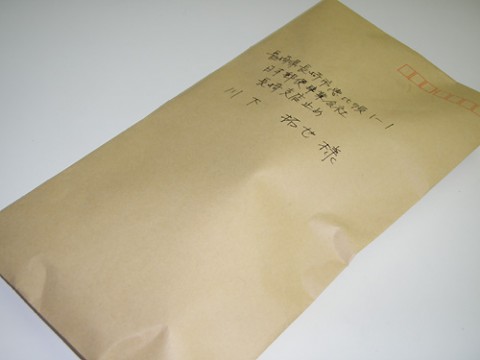 長崎県長崎市恵比須1-1
日本郵便株式会社
長崎支店止め
川下 拓也 様